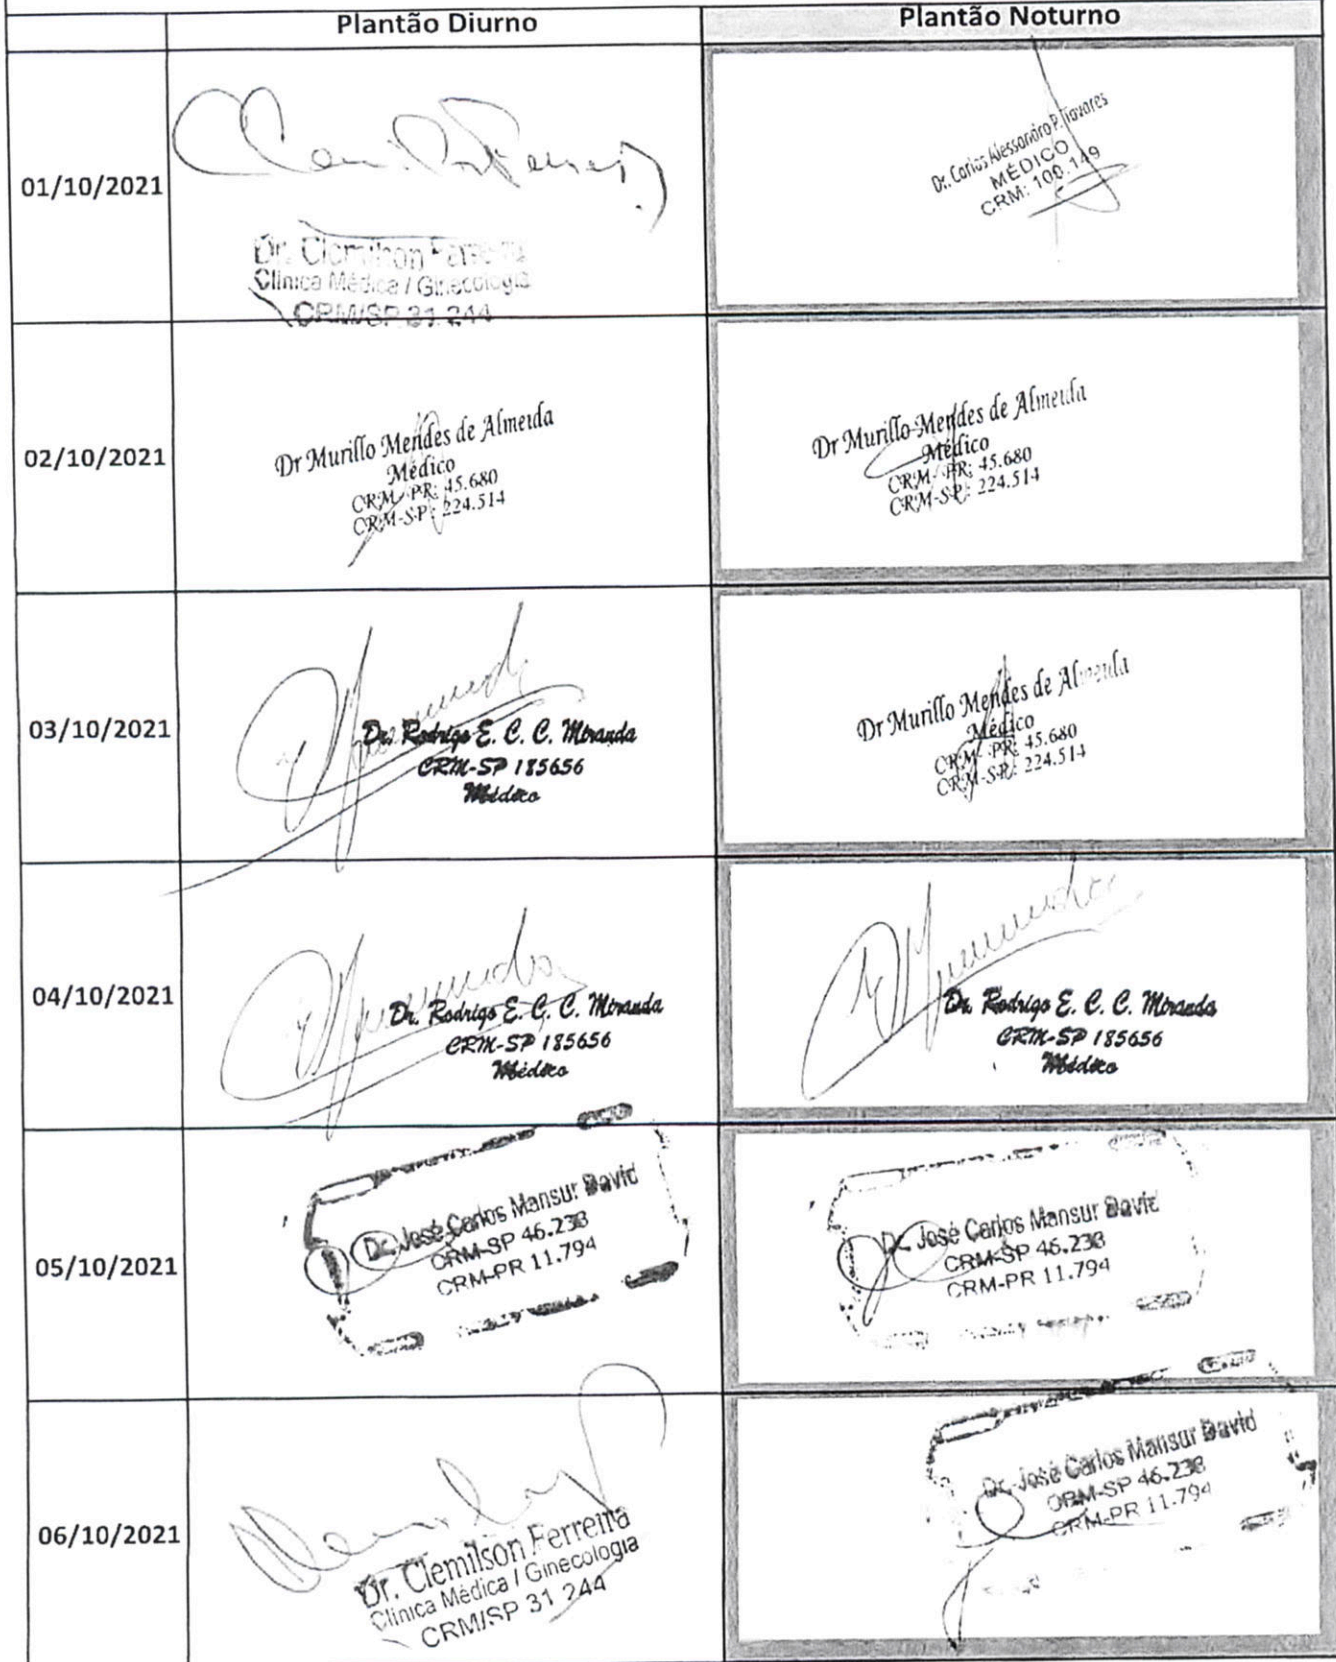 Plantão Diurno
Plantão Noturno
01/10/2021
Dr. Clemilson Ferreira
Clínica Médica / Ginecologia
CRM/SP 31 244
Dr. Carlos Alessandro P. Tavares
MÉDICO
CRM: 100.149
02/10/2021
Dr Murillo Mendes de Almeida
Médico
CRM-PR: 45.680
CRM-SP: 224.514
Dr Murillo Mendes de Almeida
Médico
CRM-PR: 45.680
CRM-SP: 224.514
03/10/2021
Dr. Rodrigo E. C. C. Miranda
CRM-SP 185656
Médico
Dr Murillo Mendes de Almeida
Médico
CRM-PR: 45.680
CRM-SP: 224.514
04/10/2021
Dr. Rodrigo E. C. C. Miranda
CRM-SP 185656
Médico
Dr. Rodrigo E. C. C. Miranda
CRM-SP 185656
Médico
05/10/2021
Dr. José Carlos Mansur David
CRM-SP 46.238
CRM-PR 11.794
Dr. José Carlos Mansur David
CRM-SP 46.238
CRM-PR 11.794
06/10/2021
Dr. Clemilson Ferreira
Clínica Médica / Ginecologia
CRM/SP 31 244
Dr. José Carlos Mansur David
CRM-SP 46.238
CRM-PR 11.794